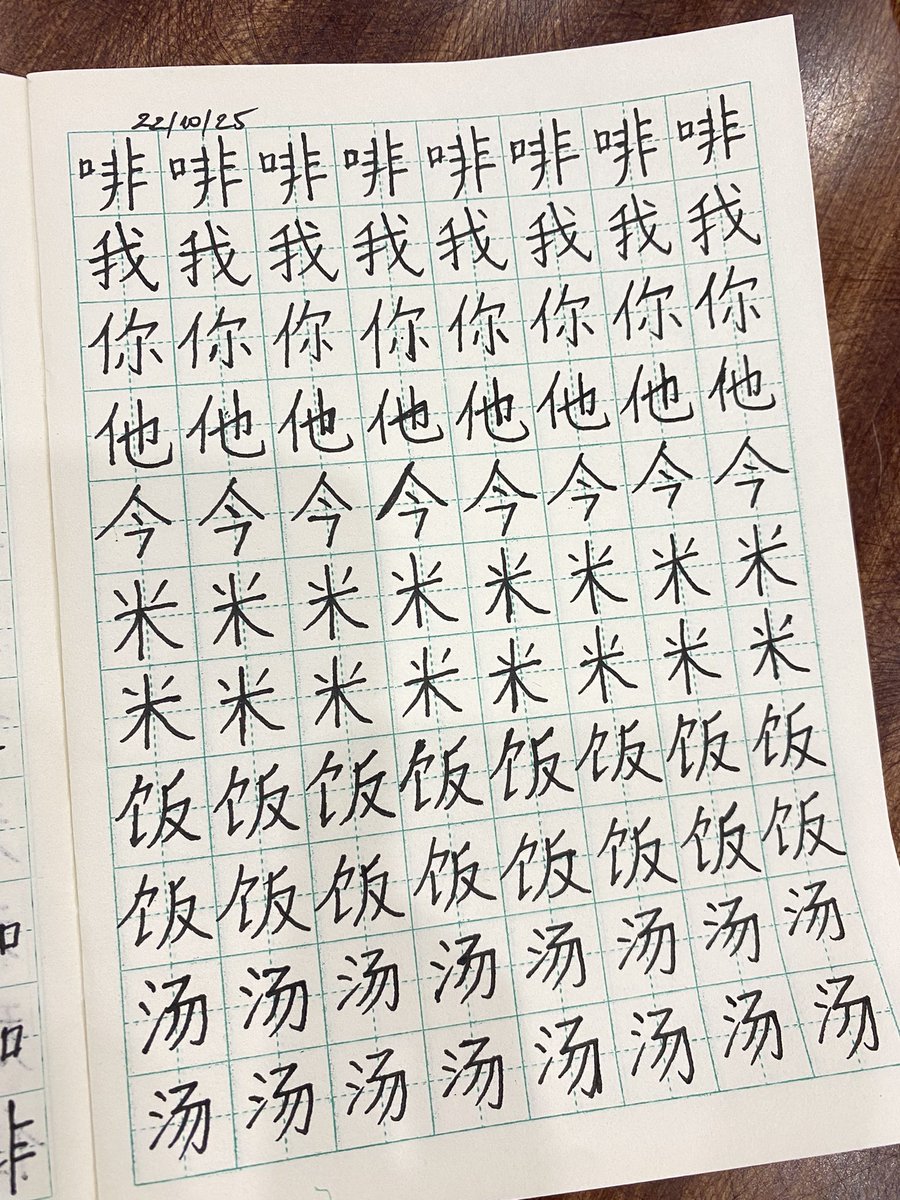 22/10/25
啡啡啡啡啡啡啡啡
我我我我我我我我
你你你你你你你你
他他他他他他他他
今今今今今今今今
米米米米米米米米
米米米米米米米米
饭饭饭饭饭饭饭饭
饭饭饭饭饭饭饭饭
汤汤汤汤汤汤汤汤
汤汤汤汤汤汤汤汤